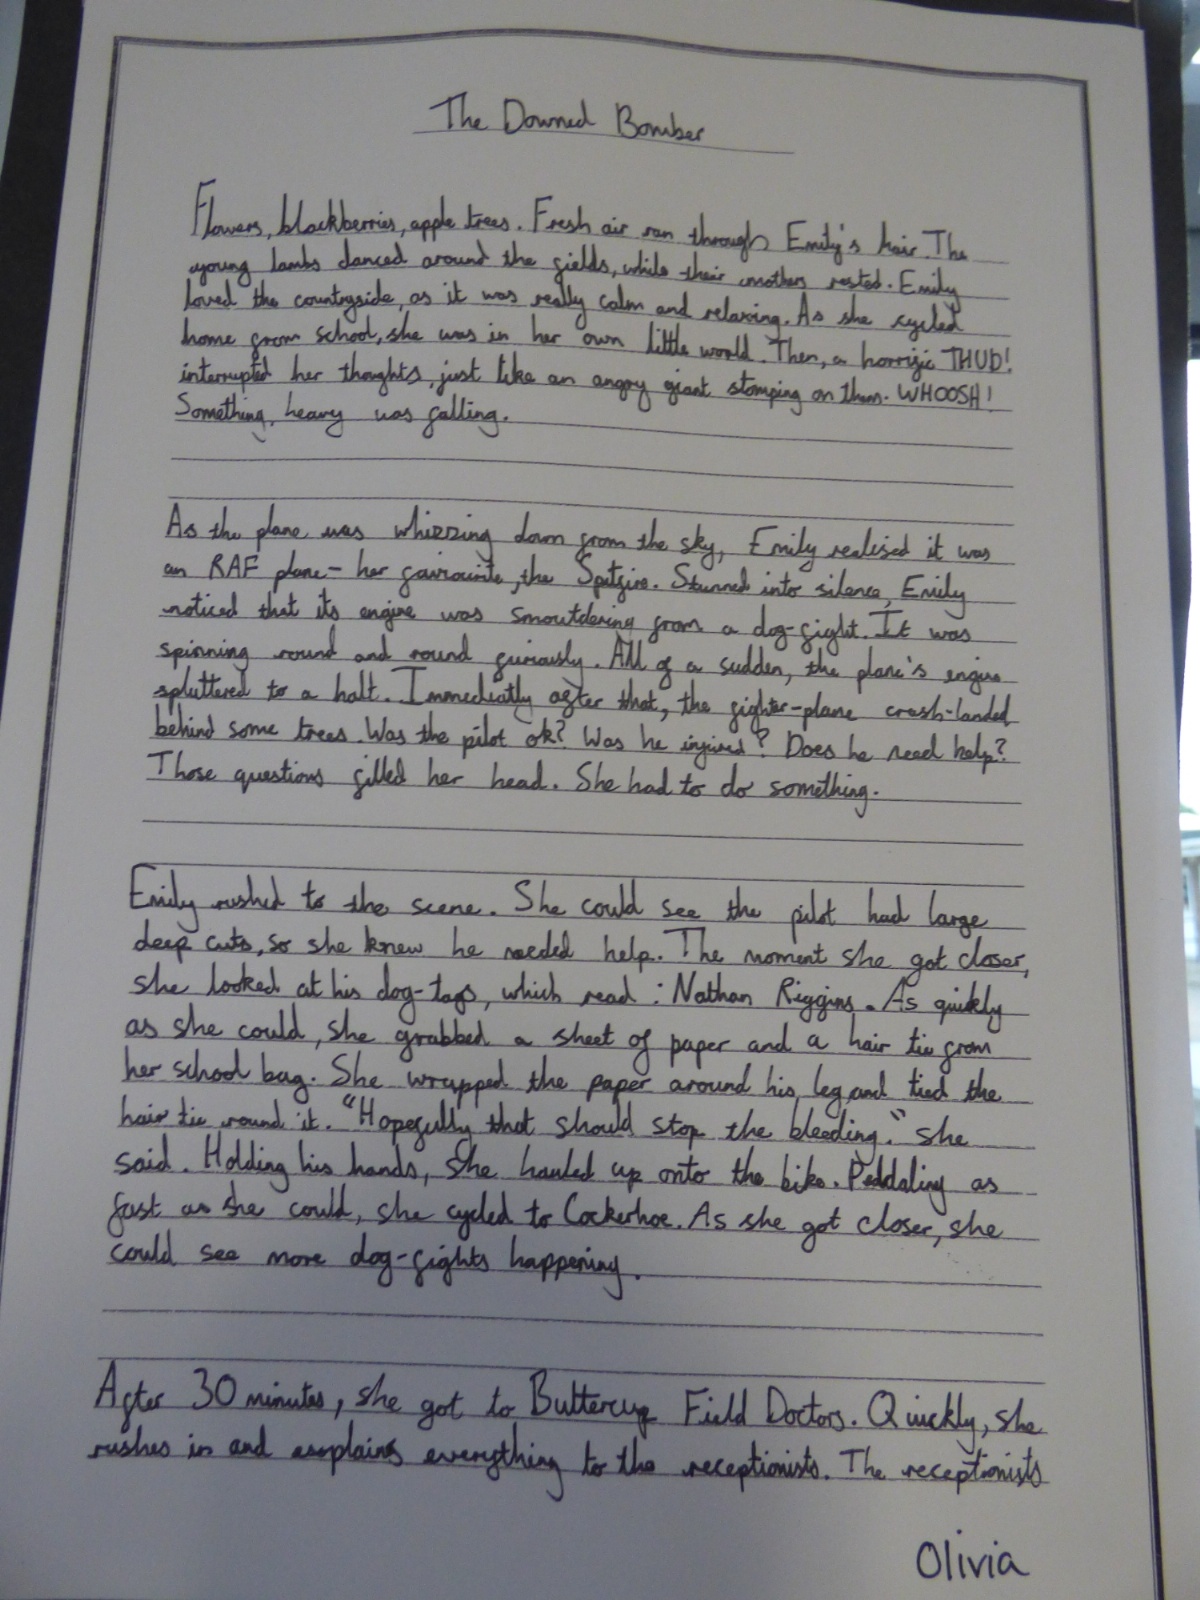 The Downed Bomber
Flowers, blackberries, apple trees. Fresh air ran through Emily's hair. The
young lambs danced around the fields, while their mothers rested. Emily
loved the countryside, as it was really calm and relaxing. As she cycled
home from school, she was in her own little world. Then, a horrific THUD!
interrupted her thoughts, just like an angry giant stomping on them. WHOOSH!
Something heavy was falling.
As the plane was whizzing down from the sky, Emily realised it was
an RAF plane - her faviourite, the Spitfire. Stunned into silence, Emily
noticed that its engine was smouldering from a dog-fight. It was
spinning round and round furiously. All of a sudden, the plane's engine
spluttered to a halt. Immediatly after that, the fighter-plane crash-landed
behind some trees. Was the pilot ok? Was he injured? Does he need help?
Those questions filled her head. She had to do something.
Emily rushed to the scene. She could see the pilot had large
deep cuts, so she knew he needed help. The moment she got closer,
she looked at his dog-tags, which read : Nathan Riggins. As quickly
as she could, she grabbed a sheet of paper and a hair tie from
her school bag. She wrapped the paper around his leg and tied the
hair tie round it. "Hopefully that should stop the bleeding." she
said. Holding his hands, she hauled up onto the bike. Peddaling as
fast as she could, she cycled to Cockerhoe. As she got closer, she
could see more dog-fights happening.
After 30 minutes, she got to Buttercup Field Doctors. Quickly, she
rushes in and explains everything to the receptionists. The receptionists
Olivia